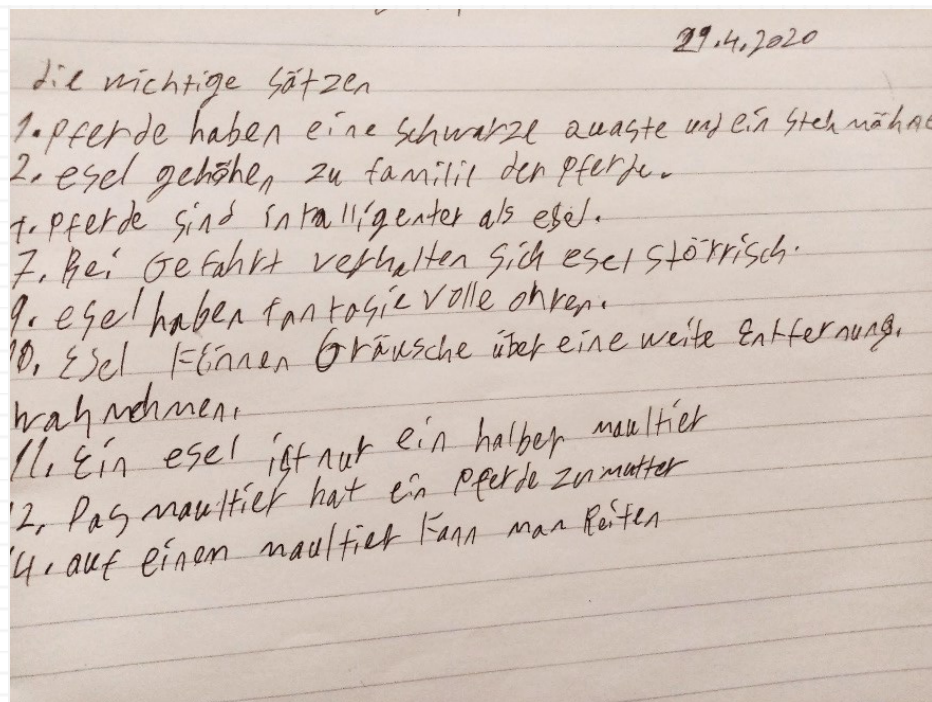 29.4.2020
die wichtige sätzen
1. pferde haben eine schwarze quaste und ein steh mähne
2. esel gehöhen zu familie der pferde.
4. pferde sind intalligenter als esel.
7. Bei Gefahrt verhalten sich esel störrisch.
9. esel haben fantasie volle ohren.
10. Esel können Gräusche über eine weite Entfernung.
wahrnehmen.
11. Ein esel ist nur ein halber maultier
12. Das maultier hat ein pferde zur mutter
14. auf einem maultier kann man Reiten